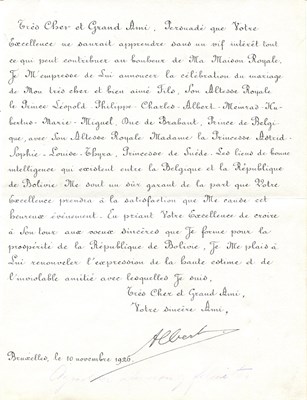 Très Cher et Grand Ami, Persuadé que Votre
Excellence ne saurait apprendre sans un vif intérêt tout
ce qui peut contribuer au bonheur de Ma Maison Royale,
Je M'empresse de Lui annoncer la célébration du mariage
de Mon très cher et bien aimé Fils, Son Altesse Royale
le Prince Léopold-Philippe-Charles-Albert-Meinrad-Hu-
bertus-Marie-Miguel, Duc de Brabant, Prince de Belgi-
que, avec Son Altesse Royale Madame la Princesse Astrid-
Sophie-Louise-Thyra, Princesse de Suède. Les liens de bonne
intelligence qui existent entre la Belgique et la République
de Bolivie Me sont un sûr garant de la part que Votre
Excellence prendra à la satisfaction que Me cause cet
heureux événement. En priant Votre Excellence de croire
à Son tour aux voeux sincères que Je forme pour la
prospérité de la République de Bolivie, Je Me plais à
Lui renouveler l'expression de la haute estime et de
l'inviolable amitié avec lesquelles Je suis,
Très Cher et Grand Ami,
Votre sincère Ami,
Albert
Bruxelles, le 10 novembre 1926